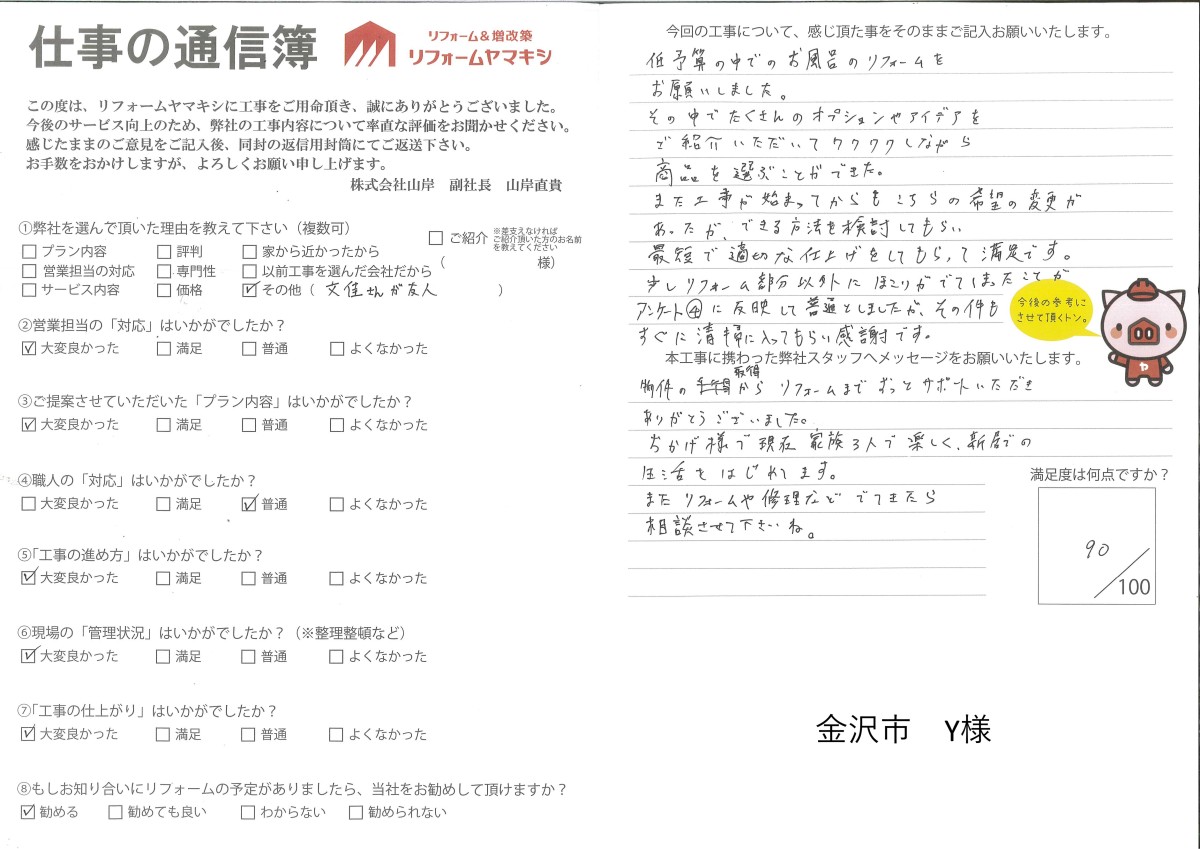 仕事の通信簿
リフォーム&増改築
リフォームヤマキシ
この度は、リフォームヤマキシに工事をご用命頂き、誠にありがとうございました。
今後のサービス向上のため、弊社の工事内容について率直な評価をお聞かせください。
感じたままのご意見をご記入後、同封の返信用封筒にてご返送下さい。
お手数をおかけしますが、よろしくお願い申し上げます。
株式会社山岸 副社長 山岸直貴
①弊社を選んで頂いた理由を教えて下さい(複数可)
□ プラン内容 □ 評判 □ 家から近かったから □ ご紹介 ※差支えなければ
ご紹介頂いた方のお名前
を教えてください
□ 営業担当の対応 □ 専門性 □ 以前工事を選んだ会社だから ( 様)
□ サービス内容 □ 価格 ☑ その他( 文佳さんが友人 )
②営業担当の「対応」はいかがでしたか?
☑ 大変良かった □ 満足 □ 普通 □ よくなかった
③ご提案させていただいた「プラン内容」はいかがでしたか?
☑ 大変良かった □ 満足 □ 普通 □ よくなかった
④職人の「対応」はいかがでしたか?
□ 大変良かった □ 満足 ☑ 普通 □ よくなかった
⑤「工事の進め方」はいかがでしたか?
☑ 大変良かった □ 満足 □ 普通 □ よくなかった
⑥現場の「管理状況」はいかがでしたか?(※整理整頓など)
☑ 大変良かった □ 満足 □ 普通 □ よくなかった
⑦「工事の仕上がり」はいかがでしたか?
☑ 大変良かった □ 満足 □ 普通 □ よくなかった
⑧もしお知り合いにリフォームの予定がありましたら、当社をお勧めして頂けますか?
☑ 勧める □ 勧めても良い □ わからない □ 勧められない
今回の工事について、感じ頂た事をそのままご記入お願いいたします。
低予算の中でのお風呂のリフォームを
お願いしました。
その中でたくさんのオプションやアイデアを
ご紹介いただいてワクワクしながら
商品を選ぶことができた。
また工事が始まってからもこちらの希望の変更が
あったが、できる方法を検討してもらい
最短で適切な仕上げをしてもらって満足です。
少しリフォーム部分以外にほこりがでてしまったことが
アンケート④に反映して普通としましたが、その件も
すぐに清掃に入ってもらい感謝です。
今後の参考に
させて頂くトン。
ヤ
本工事に携わった弊社スタッフへメッセージをお願いいたします。
物件の取得からリフォームまでずっとサポートいただき
ありがとうございました。
おかげ様で現在家族3人で楽しく、新居での
生活をはじめてます。
またリフォームや修理などでてきたら
相談させて下さいね。
満足度は何点ですか?
90
/100
金沢市 Y様